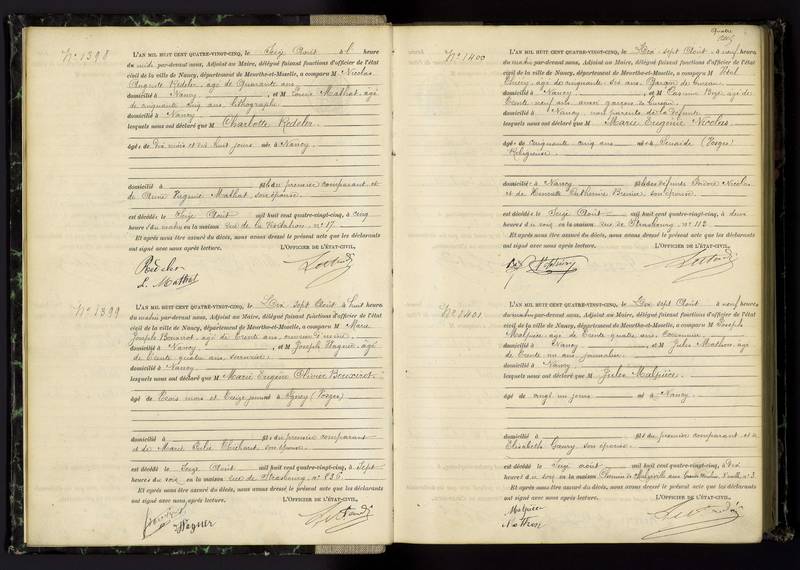 N° 1398
L'AN MIL HUIT CENT QUATRE-VINGT-CINQ, le Seize Août à heure
du par-devant nous, Adjoint au Maire, délégué faisant fonctions d'officier de l'état
civil de la ville de Nancy, département de Meurthe-et-Moselle, a comparu M Nicolas
Auguste Redeler, âgé de Quarante ans
domicilié à Nancy, et M Louis Mathat, âgé
de cinquante cinq ans, lithographe
domicilié à Nancy
lesquels nous ont déclaré que M Charlotte Redeler
âgée de Dix mois et dix huit jours née à Nancy
domicilié à fille du premier comparant et
de Anne Eugénie Mathat, son épouse
est décédée le Seize Août mil huit cent quatre-vingt-cinq, à cinq
heures du matin en la maison rue de la Visitation, n° 17.
Et après nous être assuré du décès, nous avons dressé le présent acte que les déclarants
ont signé avec nous après lecture. L'OFFICIER DE L'ÉTAT-CIVIL,
L. Mathat
N° 1399
L'AN MIL HUIT CENT QUATRE-VINGT-CINQ, le Dix sept Août à huit heures
du matin par-devant nous, Adjoint au Maire, délégué faisant fonctions d'officier de l'état
civil de la ville de Nancy, département de Meurthe-et-Moselle, a comparu M Marie
Joseph âgé de Trente ans,
domicilié à Nancy, et M Joseph Wagner âgé
de Trente quatre ans, serrurier
domicilié à Nancy
lesquels nous ont déclaré que M Marie Eugène Olivier
âgé de Trois mois et Treize jours né à (Vosges)
domicilié à fils du premier comparant
et de Marie son épouse
est décédé le Seize Août mil huit cent quatre-vingt-cinq, à Sept
heures du soir en la maison rue de Strasbourg, n°
Et après nous être assuré du décès, nous avons dressé le présent acte que les déclarants
ont signé avec nous après lecture. L'OFFICIER DE L'ÉTAT-CIVIL,
Wagner
N° 1400
L'AN MIL HUIT CENT QUATRE-VINGT-CINQ, le Dix sept Août à neuf heures
du matin par-devant nous, Adjoint au Maire, délégué faisant fonctions d'officier de l'état
civil de la ville de Nancy, département de Meurthe-et-Moselle, a comparu M
Thiery, âgé de cinquante six ans, Garçon de bureau
domicilié à Nancy, et M Casimir âgé de
Trente neuf ans, aussi garçon de bureau
domicilié à Nancy, non parents de la défunte
lesquels nous ont déclaré que M Marie Eugénie Nicolas
âgée de cinquante cinq ans née à Senaide (Vosges)
Religieuse
domiciliée à Nancy fille des défunts Nicolas
et de Henriette Catherine son épouse
est décédée le Seize Août mil huit cent quatre-vingt-cinq, à deux
heures du soir en la maison rue de Strasbourg, n° 112
Et après nous être assuré du décès, nous avons dressé le présent acte que les déclarants
ont signé avec nous après lecture. L'OFFICIER DE L'ÉTAT-CIVIL,
N° 1401
L'AN MIL HUIT CENT QUATRE-VINGT-CINQ, le Dix sept Août à neuf heures
du matin par-devant nous, Adjoint au Maire, délégué faisant fonctions d'officier de l'état
civil de la ville de Nancy, département de Meurthe-et-Moselle, a comparu M Joseph
Malpièce âgé de Trente quatre ans
domicilié à Nancy, et M Jules Mathon âgé
de Trente un ans, journalier
domicilié à Nancy
lesquels nous ont déclaré que M Jules Malpièce
âgé de vingt un jours né à Nancy
domicilié à fils du premier comparant et d'
Elisabeth son épouse
est décédé le Seize août mil huit cent quatre-vingt-cinq, à Dix
heures du soir en la maison n° 3
Et après nous être assuré du décès, nous avons dressé le présent acte que les déclarants
ont signé avec nous après lecture. L'OFFICIER DE L'ÉTAT-CIVIL,
Malpièce
Mathon